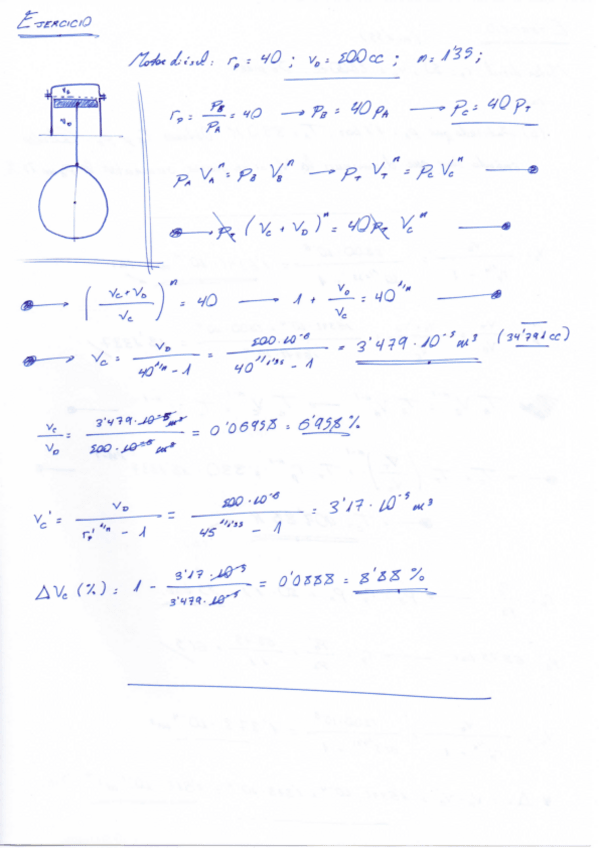 EJERCICIO
Motor diésel: rp = 40 ; VD = 500cc ; n = 1'35 ;
Vc
VD
rp = PB/PA = 40 → PB = 40 PA → Pc = 40 PT
PA VA^n = PB VB^n → PT VT^n = Pc Vc^n
→ PT (Vc + VD)^n = 40 PT Vc^n
→ ((Vc + VD)/Vc)^n = 40 → 1 + VD/Vc = 40^1/n
→ Vc = VD/(40^1/n - 1) = 500·10^-6/(40^1/1'35 - 1) = 3'479·10^-5 m³ (34'791cc)
Vc/VD = 3'479·10^-5 m³/500·10^-6 m³ = 0'06958 = 6'958 %
Vc' = VD/(rp'^1/n - 1) = 500·10^-6/(45^1/1'35 - 1) = 3'17·10^-5 m³
ΔVc (%) = 1 - 3'17·10^-5/3'479·10^-5 = 0'0888 = 8'88 %